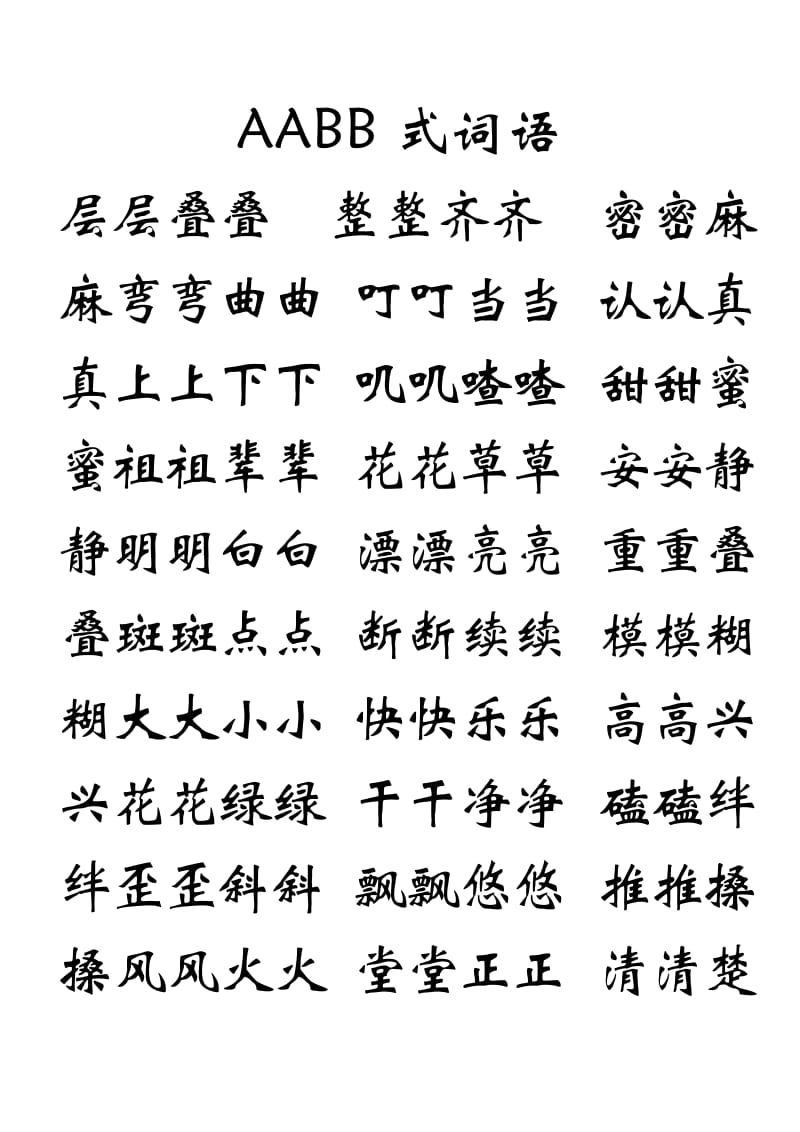 AABB 式词语
层层叠叠 整整齐齐 密密麻
麻弯弯曲曲 叮叮当当 认认真
真上上下下 叽叽喳喳 甜甜蜜
蜜祖祖辈辈 花花草草 安安静
静明明白白 漂漂亮亮 重重叠
叠斑斑点点 断断续续 模模糊
糊大大小小 快快乐乐 高高兴
兴花花绿绿 干干净净 磕磕绊
绊歪歪斜斜 飘飘悠悠 推推搡
搡风风火火 堂堂正正 清清楚